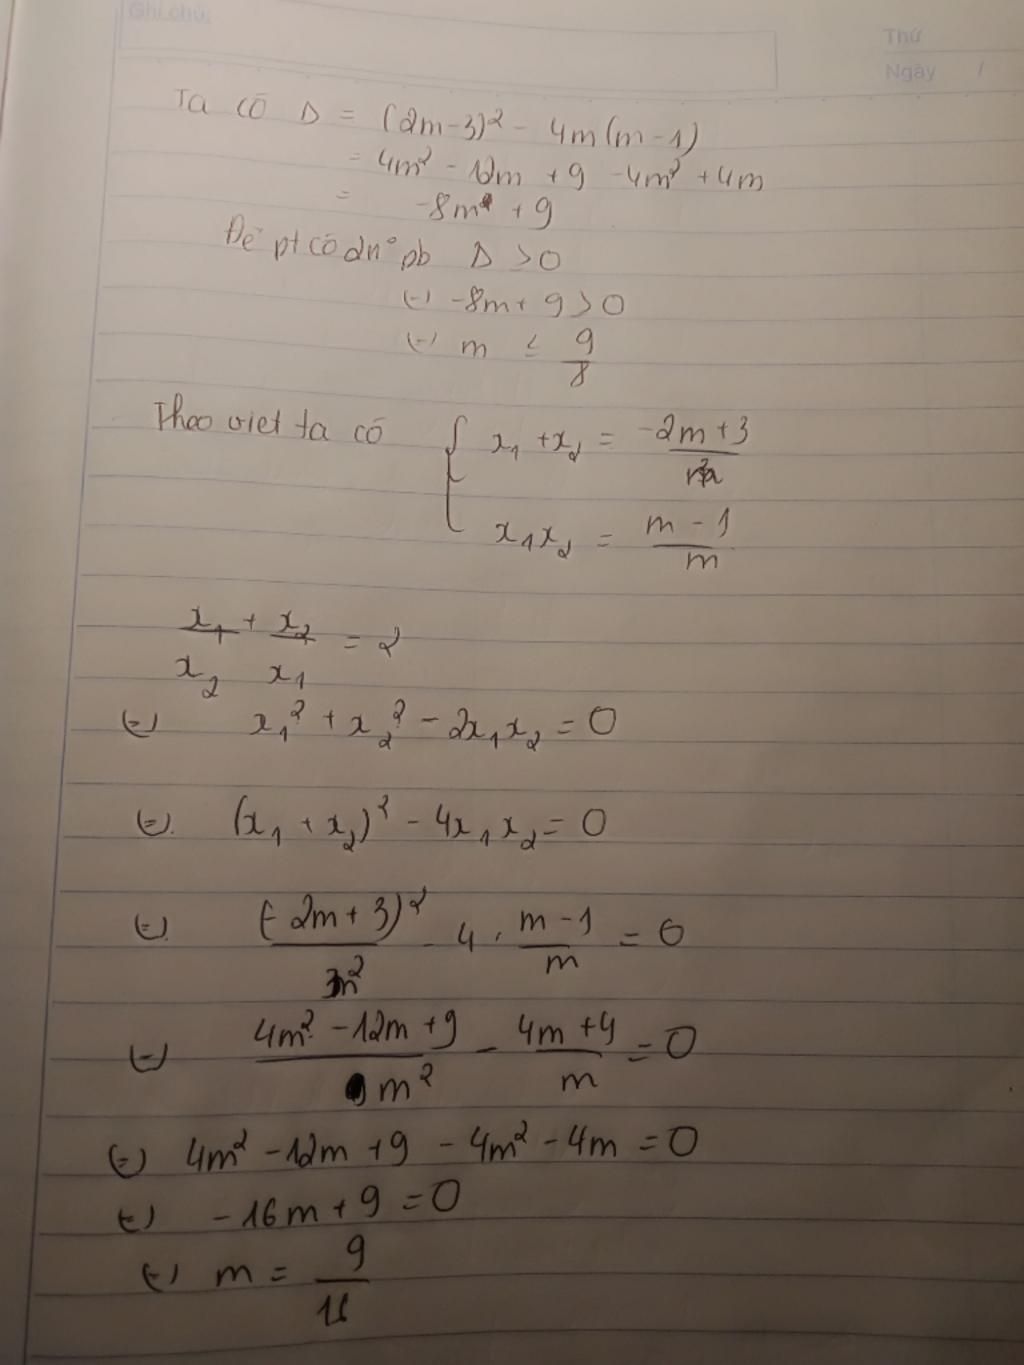 Ghi chú:
Thứ
Ngày /
Ta có Δ = (2m-3)² - 4m(m-1)
= 4m² - 12m + 9 - 4m² + 4m
= -8m + 9
Để pt có 2n° pb Δ > 0
(=) -8m + 9 > 0
(=) m ≤ 9/8
Theo viet ta có { x₁ + x₂ = (-2m+3)/m
x₁x₂ = (m-1)/m
x₁/x₂ + x₂/x₁ = 2
(=) x₁² + x₂² - 2x₁x₂ = 0
(=) (x₁ + x₂)² - 4x₁x₂ = 0
(=) (-2m+3)²/m² - 4 . (m-1)/m = 0
(=) (4m² - 12m + 9)/m² - (4m+4)/m = 0
(=) 4m² - 12m + 9 - 4m² - 4m = 0
(=) -16m + 9 = 0
(=) m = 9/16